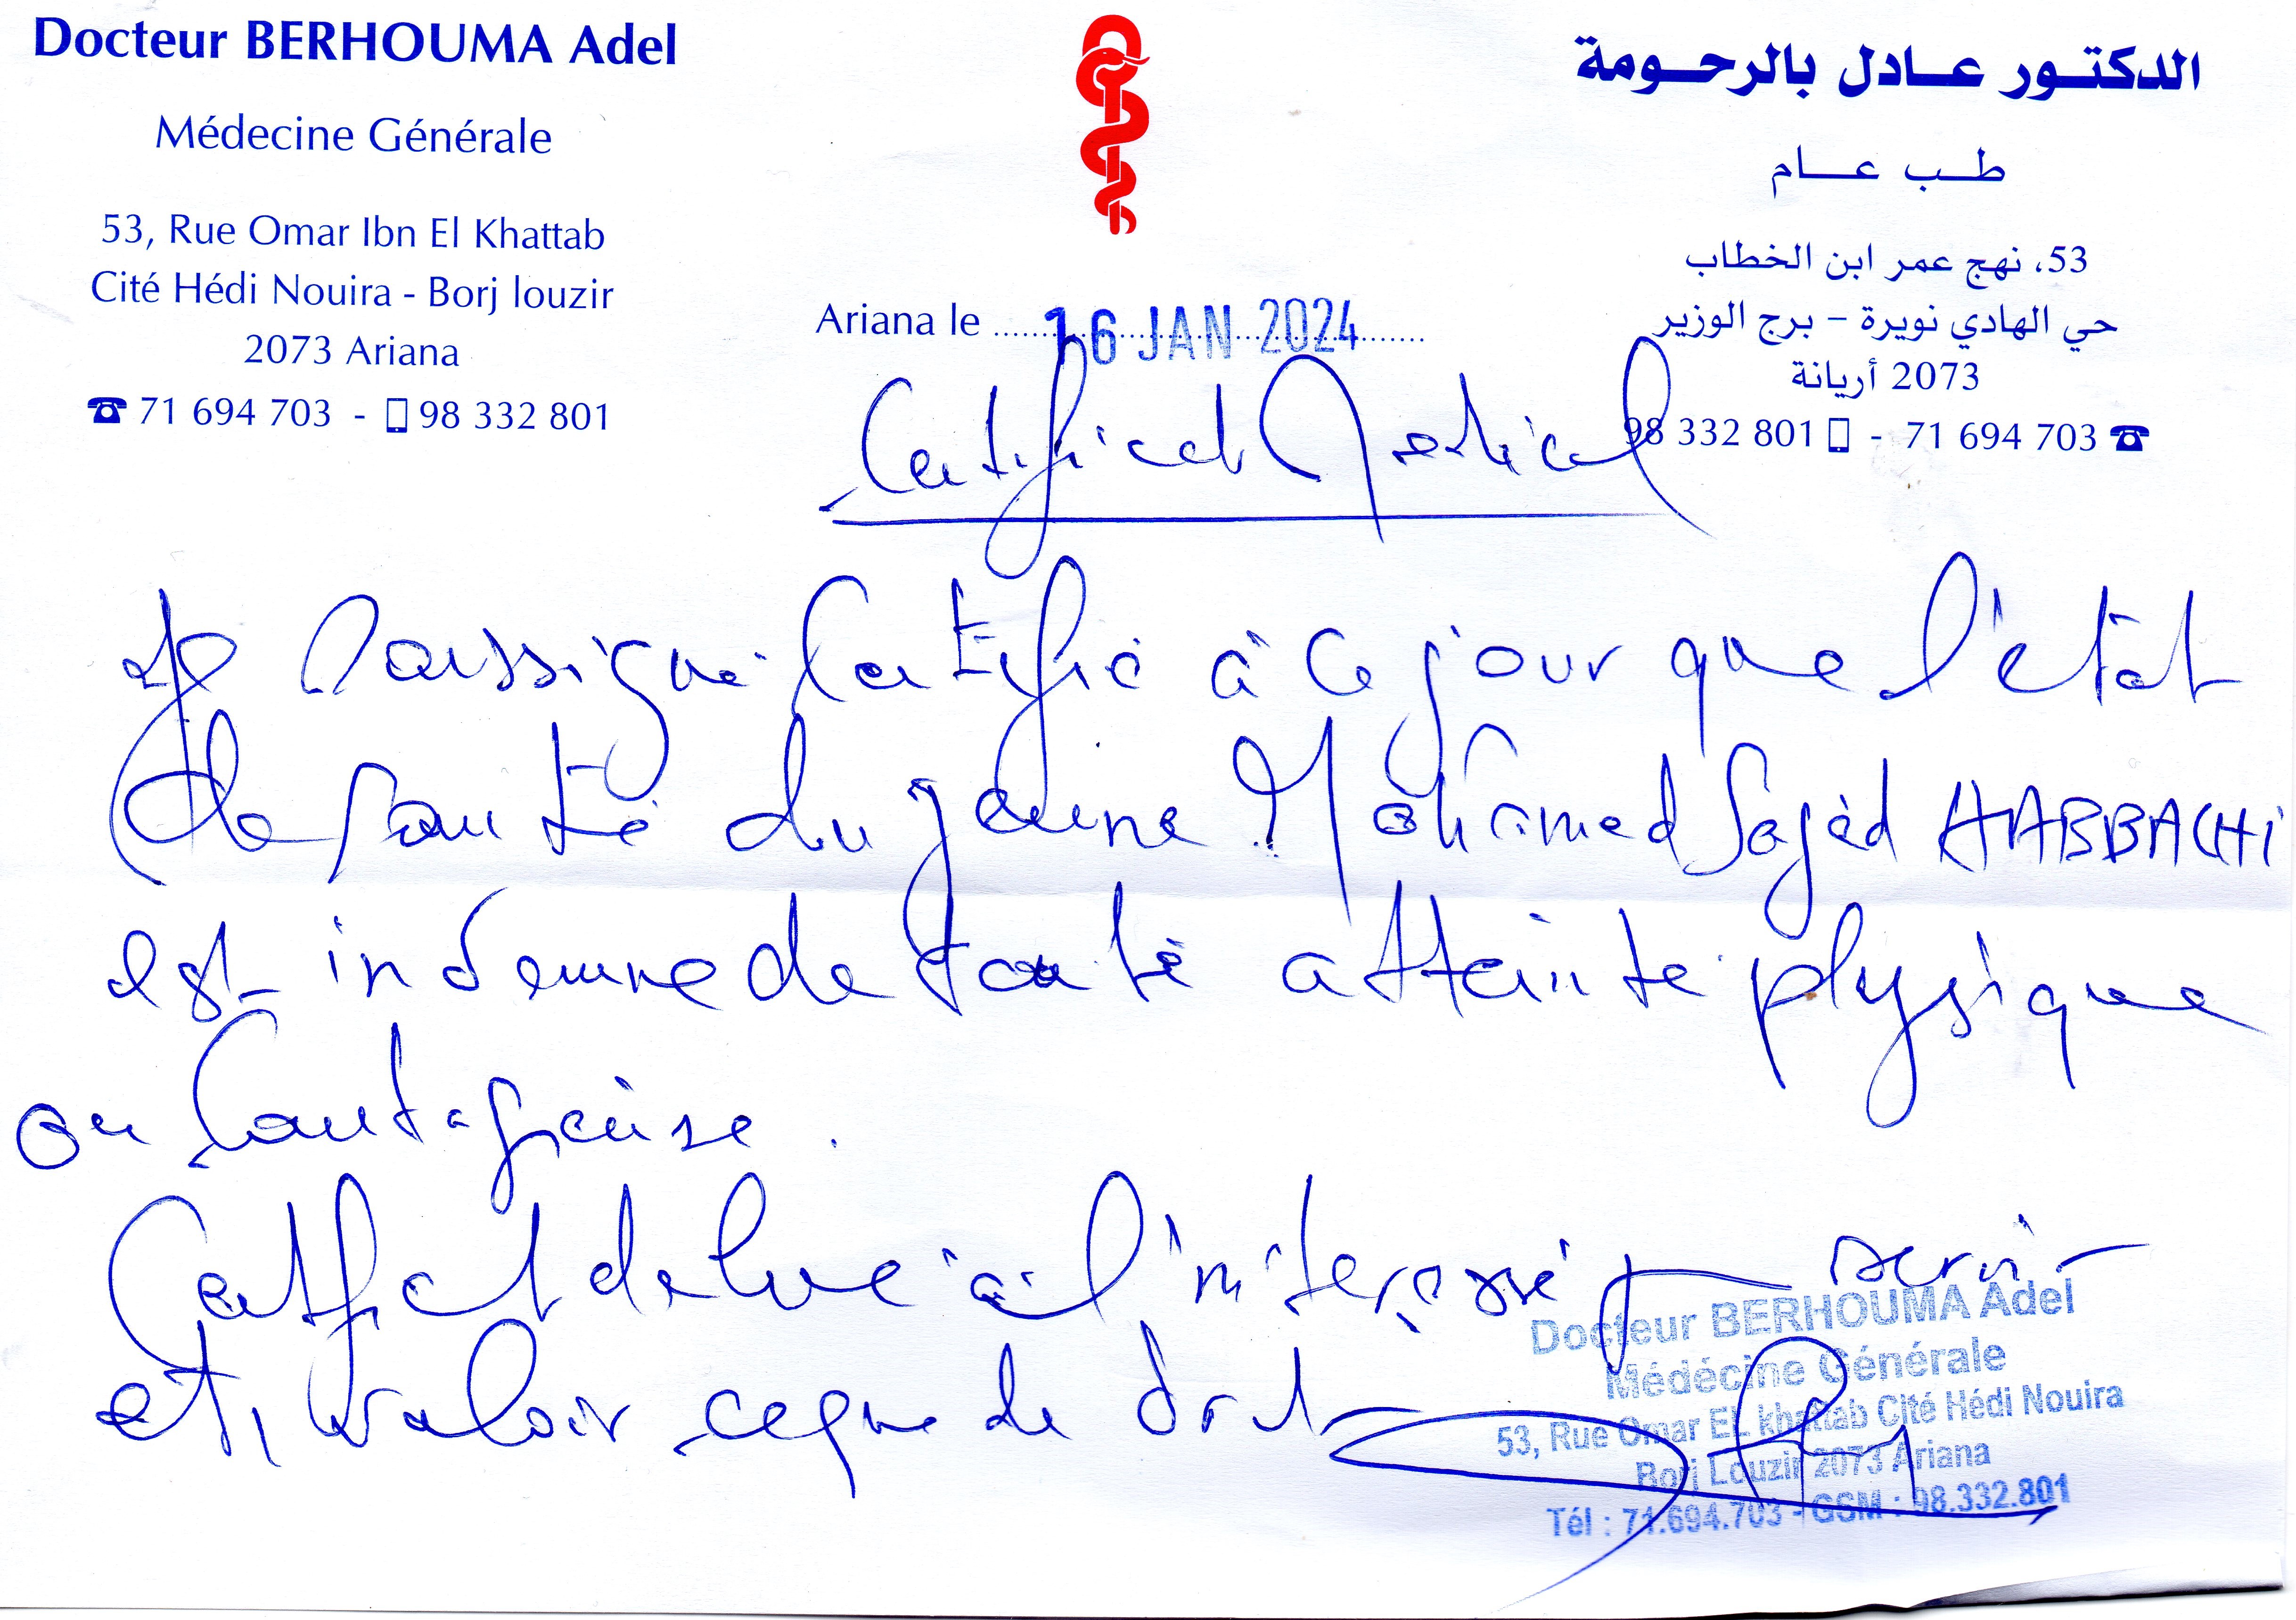 Docteur BERHOUMA Adel
Médecine Générale
53, Rue Omar Ibn El Khattab
Cité Hédi Nouira - Borj louzir
2073 Ariana
71 694 703 - 98 332 801
الدكتور عادل بالرحومة
طب عام
53، نهج عمر ابن الخطاب
حي الهادي نويرة - برج الوزير
2073 أريانة
98 332 801 - 71 694 703
Ariana le 16 JAN 2024
Certificat Medical
Je Soussigné Certifie à ce jour que l'état
de santé du jeune Mohamed Sajed HABBACHI
est indemne de toute atteinte physique
ou Contagieuse.
Certificat délivré à l'intéressé servir
et valoir ce que de droit
Docteur BERHOUMA Adel
Médécine Générale
53, Rue Omar EL khattab Cité Hédi Nouira
Borj Louzir 2073 Ariana
Tél : 71.694.703 - GSM : 98.332.801